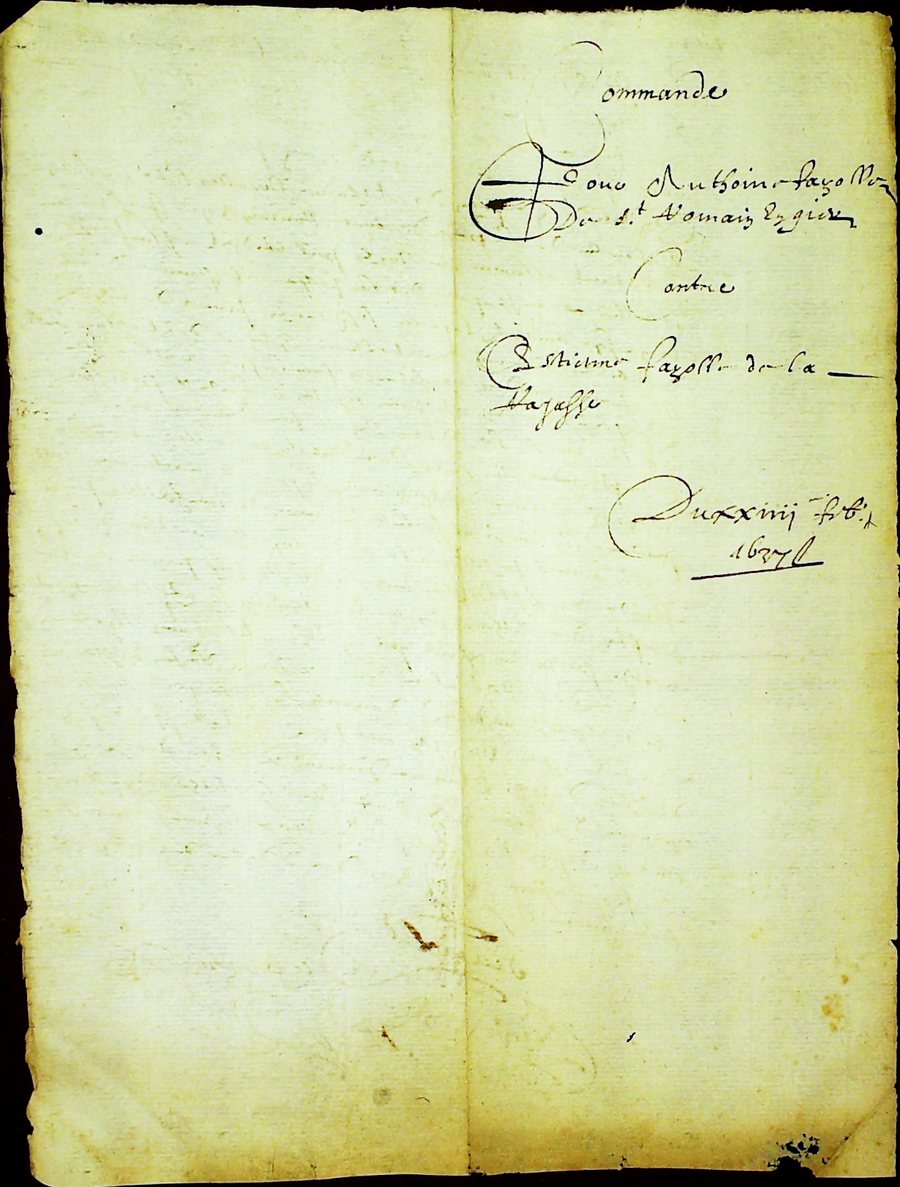 Commande
Pour Anthoine fazolle
De St Romain
Contre
Estienne fazolle de la
Du xxiiij feb.